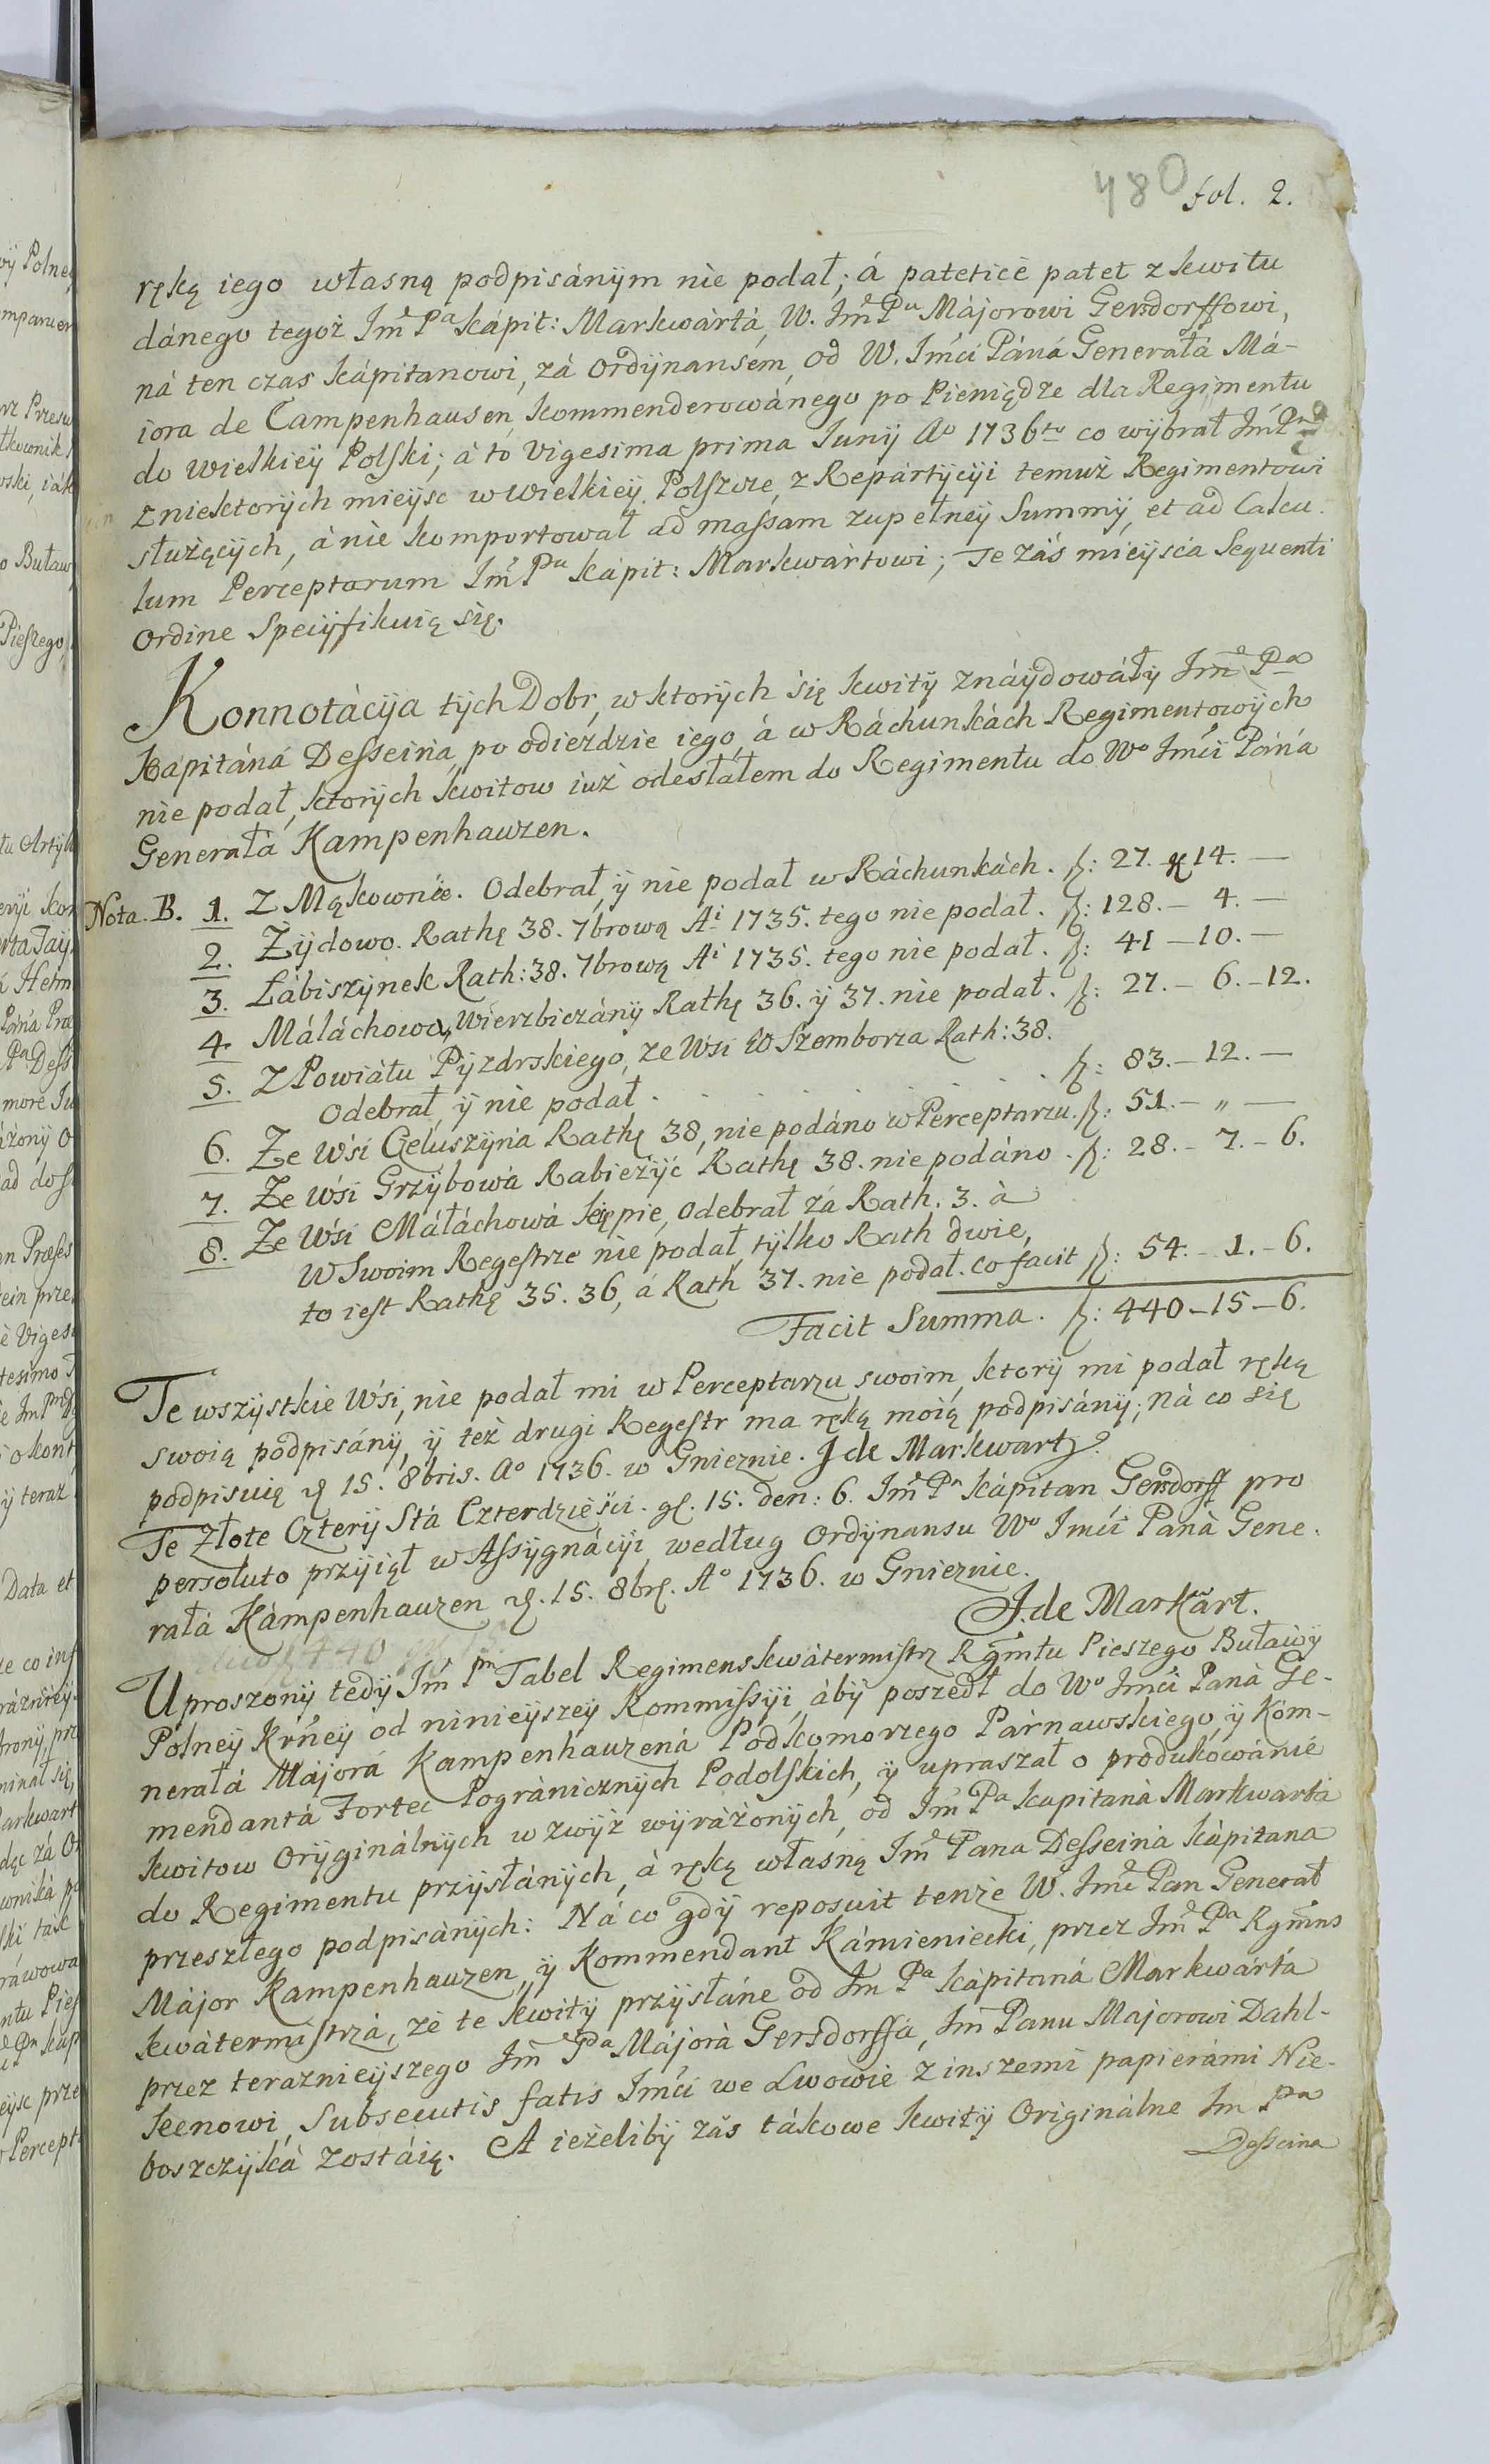 480 fol. 2.
ręką iego własną podpisánÿm nie podał; á patetice patet z kwitu
dánego tegoż Imć Pa Kápit: Markwártá, W. Imć Pu Májorowi Gersdorffowi,
ná ten czas kápitanowi, zá ordÿnansem, od W. Imći Páná Generałá Má-
iora de Campenhausen, kommenderowánego po Pieniądze dla Regimentu
do Wielkieÿ Polski; á to vigesima prima Iunÿ Ao 1736to co wÿbrał Imć Pn
z niektorÿch mieÿsc w Wielkieÿ Polszcze, z Repártÿcÿi temuż Regimentowi
służącÿch, á nie komportował ad massam zupełneÿ Summÿ, et ad Calcu-
lum Perceptarum Imć Pu Kápit: Markwártowi; Te záś mieÿsca Sequenti
Ordine Specÿfikuią się.
Konnotácÿa tÿch Dobr, w ktorÿch się kwitÿ znáÿdowáłÿ Imć Pa
Kápitáná Desseina, po odieździe iego, á w Ráchunkách Regimentowÿch
nie podał, ktorÿch kwitow iuż odesłałem do Regimentu do Wo Imći Páná
Generałá Kampenhauzen.
Nota. B. 1. Z Mąkownic. Odebrał, ÿ nie podał w Ráchunkách. f: 27. – 14. —
2. Zÿdowo. Rathę 38. 7brową Ai 1735. tego nie podał. f: 128. – 4. —
3. Łábiszÿnek Rath: 38. 7brową Ai 1735. tego nie podał. f: 41 – 10. —
4. Máláchowo, Wierzbiczánÿ Rathę 36. ÿ 37. nie podał. f: 27. – 6. – 12.
5. Z Powiátu Pÿzdrskiego, ze Wsi W Szemborza Rath: 38.
Odebrał, ÿ nie podał . . . . . . f: 83. – 12. —
6. Ze Wśi Czeluszÿná Rathę 38, nie podáno w Perceptarzu. f: 51. – „ —
7. Ze Wśi Grzÿbowá Rabieżÿć Rathę 38. nie podáno. f: 28. – 7. – 6.
8. Ze Wśi Máłáchowá Kępie, odebrał zá Rath. 3. á
W Swoim Regestrze nie podał, tÿlko Rath dwie,
to iest Rathę 35. 36, á Rath 37. nie podał. co facit f: 54. – 1. – 6.
Facit Summa. f: 440 – 15 – 6.
Te wszÿstkie Wśi, nie podał mi w Perceptarzu swoim, ktorÿ mi podał ręką
swoią podpisánÿ, ÿ też drugi Regestr ma ręką moią podpisánÿ; ná co się
podpisuię d. 15. 8bris. Ao 1736. w Gnieznie. J de Markwart
Te Złote Czterÿ Stá Czterdzieści. gl. 15. den: 6. Imć Pn Kápitan Gersdorff pro
persoluto przÿiął w Assÿgnácÿi, według Ordÿnansu Wo Imći Paná Gene-
rałá Kámpenhauzen d. 15. 8br. Ao 1736. w Gnieznie.
J. de Markart.
Uproszonÿ tedÿ Imć Pn Tabel Regimenskwátermistrz Rgmtu Pieszego Buławÿ
Polneÿ Krneÿ od ninieÿszeÿ Kommissÿi, ábÿ poszedł do Wo Imći Paná Ge-
nerałá Májorá Kampenhauzená Podkomorzego Párnawskiego, ÿ Kom-
mendantá Fortec Pogránicznÿch Podolskich, ÿ upraszał o produkowánie
kwitow Orÿginálnÿch w zwÿż wÿráżonÿch, od Imć Pa Kapitaná Markwartá
do Regimentu przÿsłánÿch, á ręką własną Imć Pana Desseiná Kápitana
przeszłego podpisánÿch: Ná co gdÿ reposuit tenże W. Imć Pan Generał
Májor Kampenhauzen, ÿ Kommendant Kámieniecki, przez Imć Pa Rgmns
kwátermistrzá, że te kwitÿ przÿsłáne od Imć Pa Kápitaná Markwártá
przez teraznieÿszego Imć Pa Májorá Gersdorffá, Imć Panu Majorowi Dahl-
keenowi, Subsecutis fatis Imći we Lwowie z inszemi papierámi Nie-
boszczÿká zostáią. A ieżelibÿ záś tákowe kwitÿ Originálne Imć Pa
Desseina